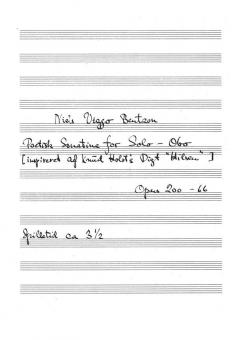 Niels Viggo Bentzon
Poetisk Sonatine for Solo - Obo
[inspireret af Knud Holst's Digt "Hilsen"]
Opus 200 - 66
Spilletid ca 3½